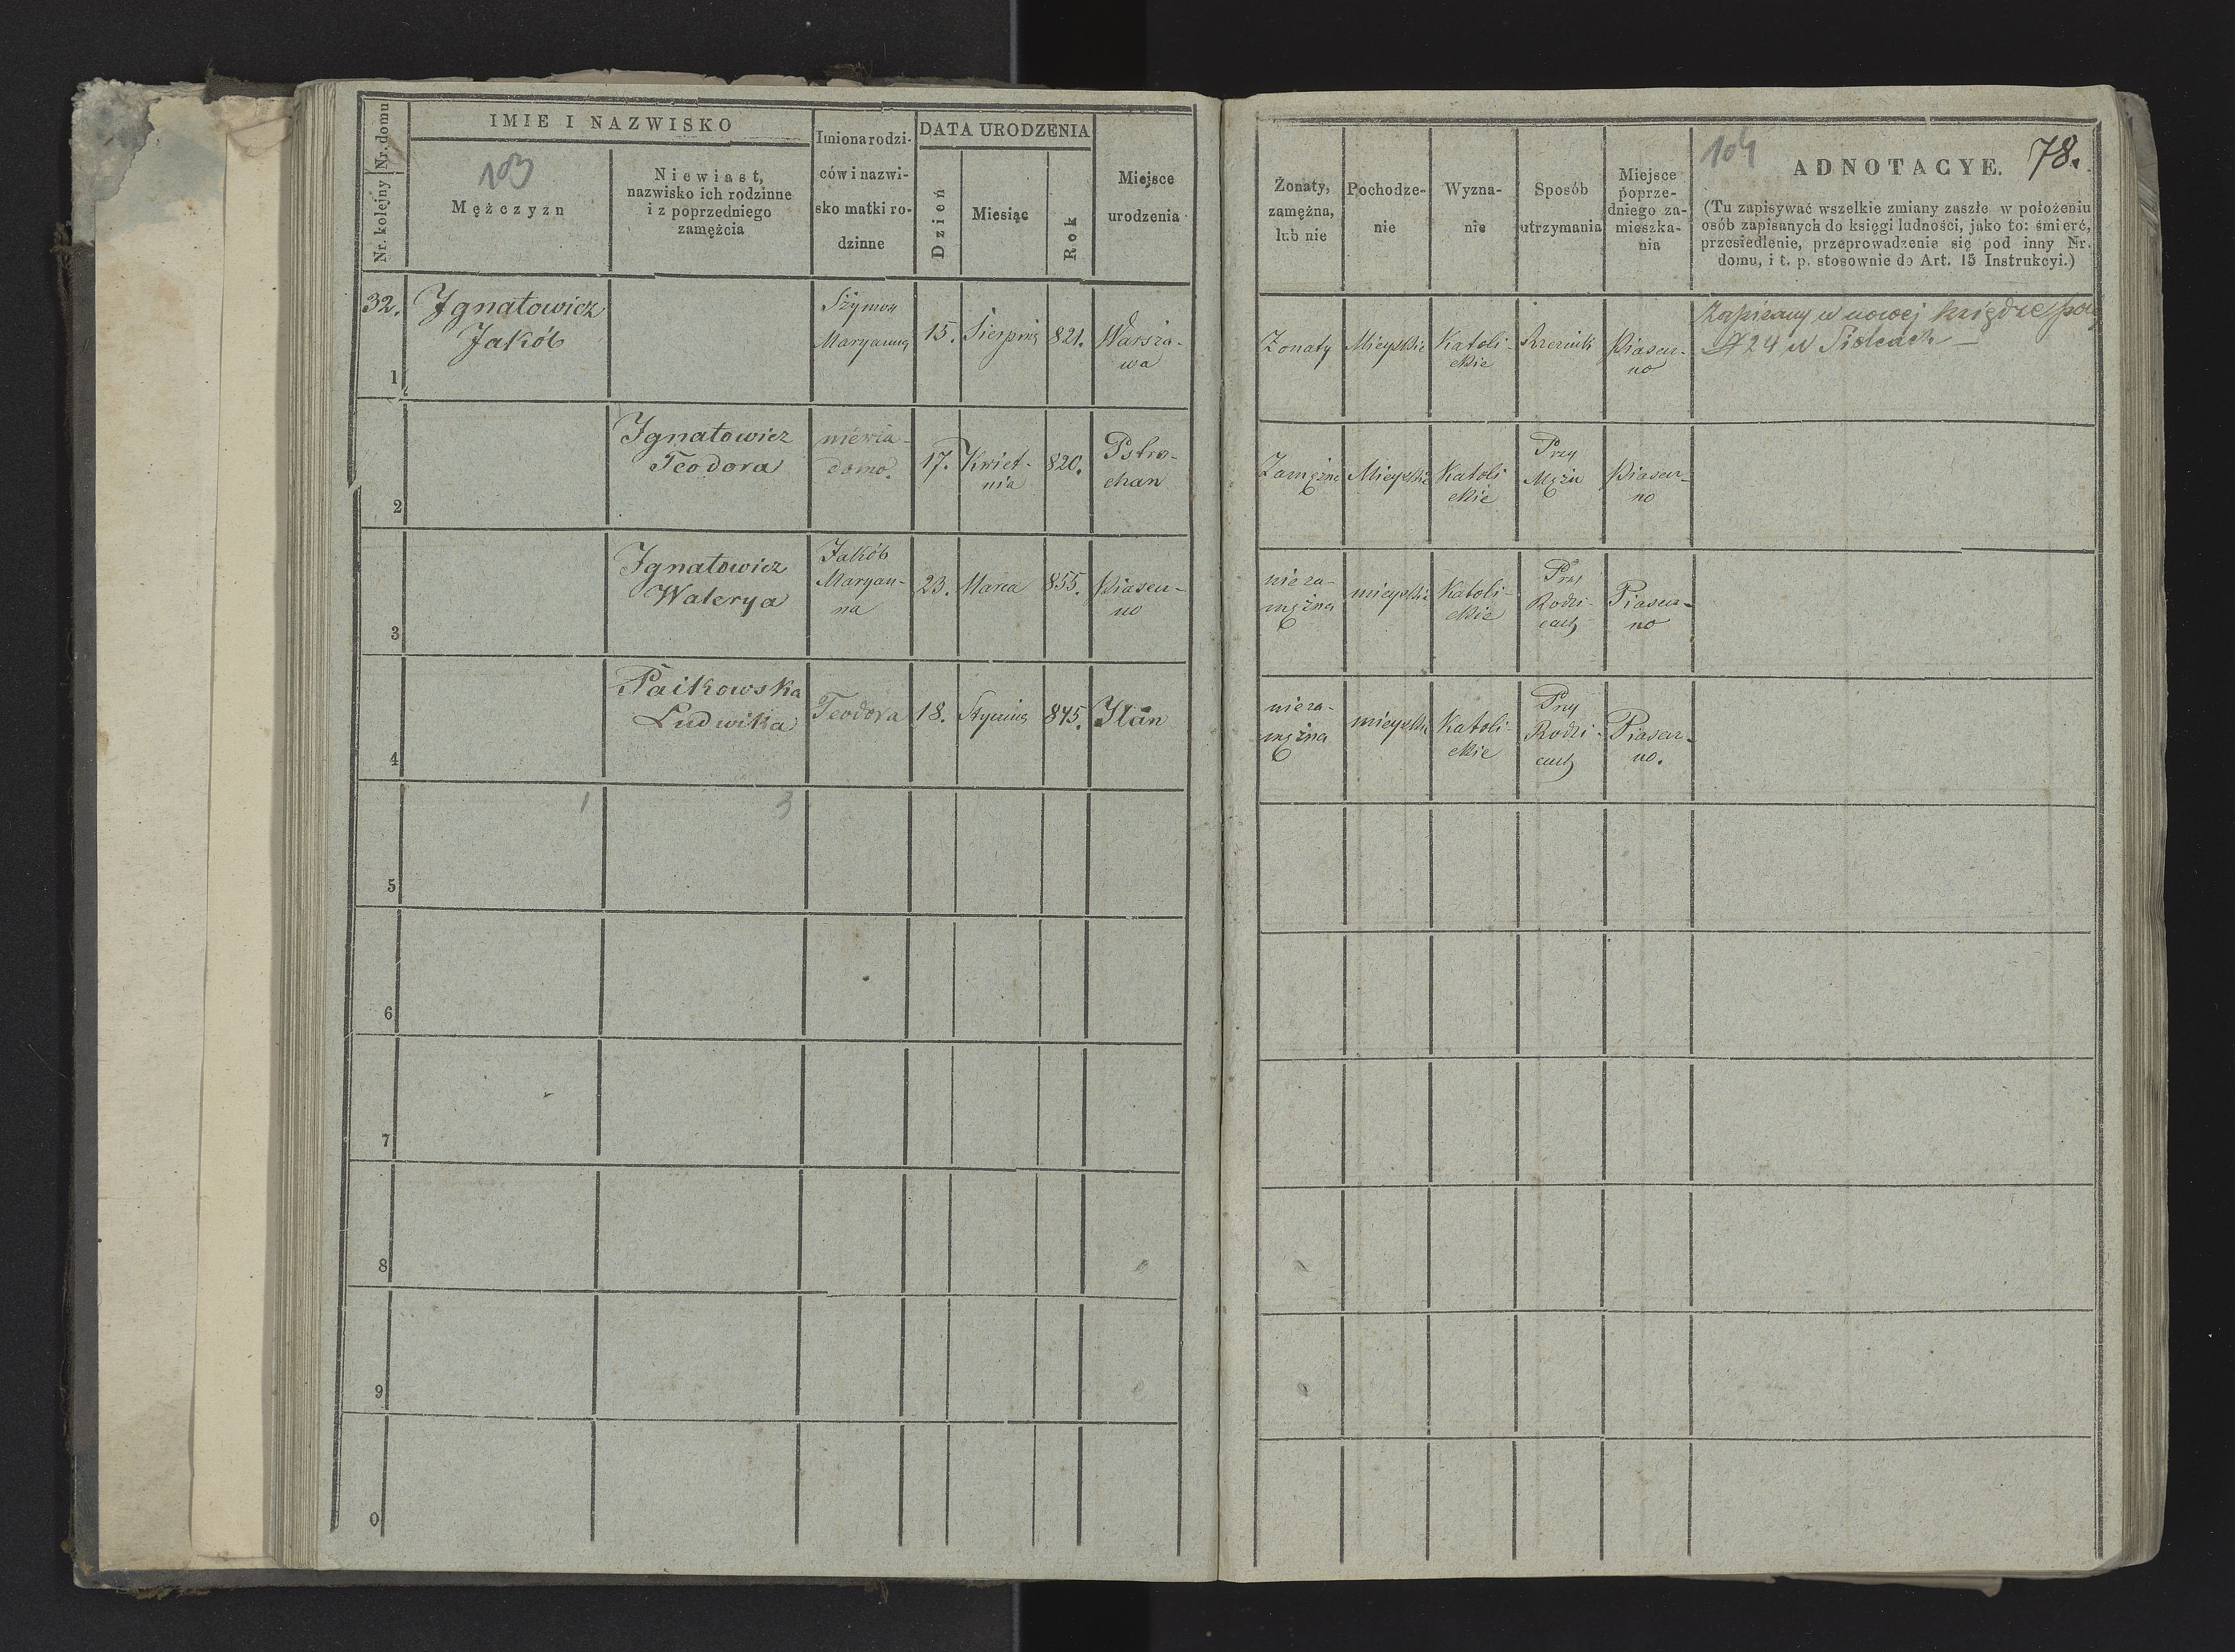 Nr. domu
Nr. kolejny
IMIE I NAZWISKO
103
Mężczyzn
Niewiast,
nazwisko ich rodzinne
i z poprzedniego
zamężcia
Imiona rodzi-
ców i nazwi-
sko matki ro-
dzinne
DATA URODZENIA
Dzień
Miesiąc
Rok
Miejsce
urodzenia
32.
Ignatowicz
Jakób
Szymon
Maryanna
15.
Sierpnia
821.
Warsza-
wa
1
Ignatowicz
Teodora
niewia-
domo.
17.
Kwiet-
nia
820.
2
Ignatowicz
Walerya
Jakób
Maryan-
na
23.
Marca
855.
Piasecz-
no
3
Paikowska
Ludwika
Teodora
18.
Stycznia
845.
4
1
3
5
6
7
8
9
0
Żonaty,
zamężna,
lub nie
Pochodze-
nie
Wyzna-
nie
Sposób
utrzymania
Miejsce
poprze-
dniego za-
mieszka-
nia
104
ADNOTACYE.
78.
(Tu zapisywać wszelkie zmiany zaszłe w położeniu
osób zapisanych do księgi ludności, jako to: śmierć,
przesiedlenie, przeprowadzenie się pod inny Nr.
domu, i t. p. stosownie do Art. 15 Instrukcyi.)
Żonaty
Mieyskie
Katoli-
ckie
Rzeznik
Piasecz-
no
Zapisany w nowej księdze pod
№ 24 w
Zamężna
Mieyskie
Katoli
ckie
Przy
Mężu
Piasecz-
no
nieza-
mężna
mieyskie
Katoli-
ckie
Przy
Rodzi-
cach
Piasecz-
no
nieza-
mężna
mieyskie
Katoli-
ckie
Przy
Rodzi-
cach
Piasecz-
no.